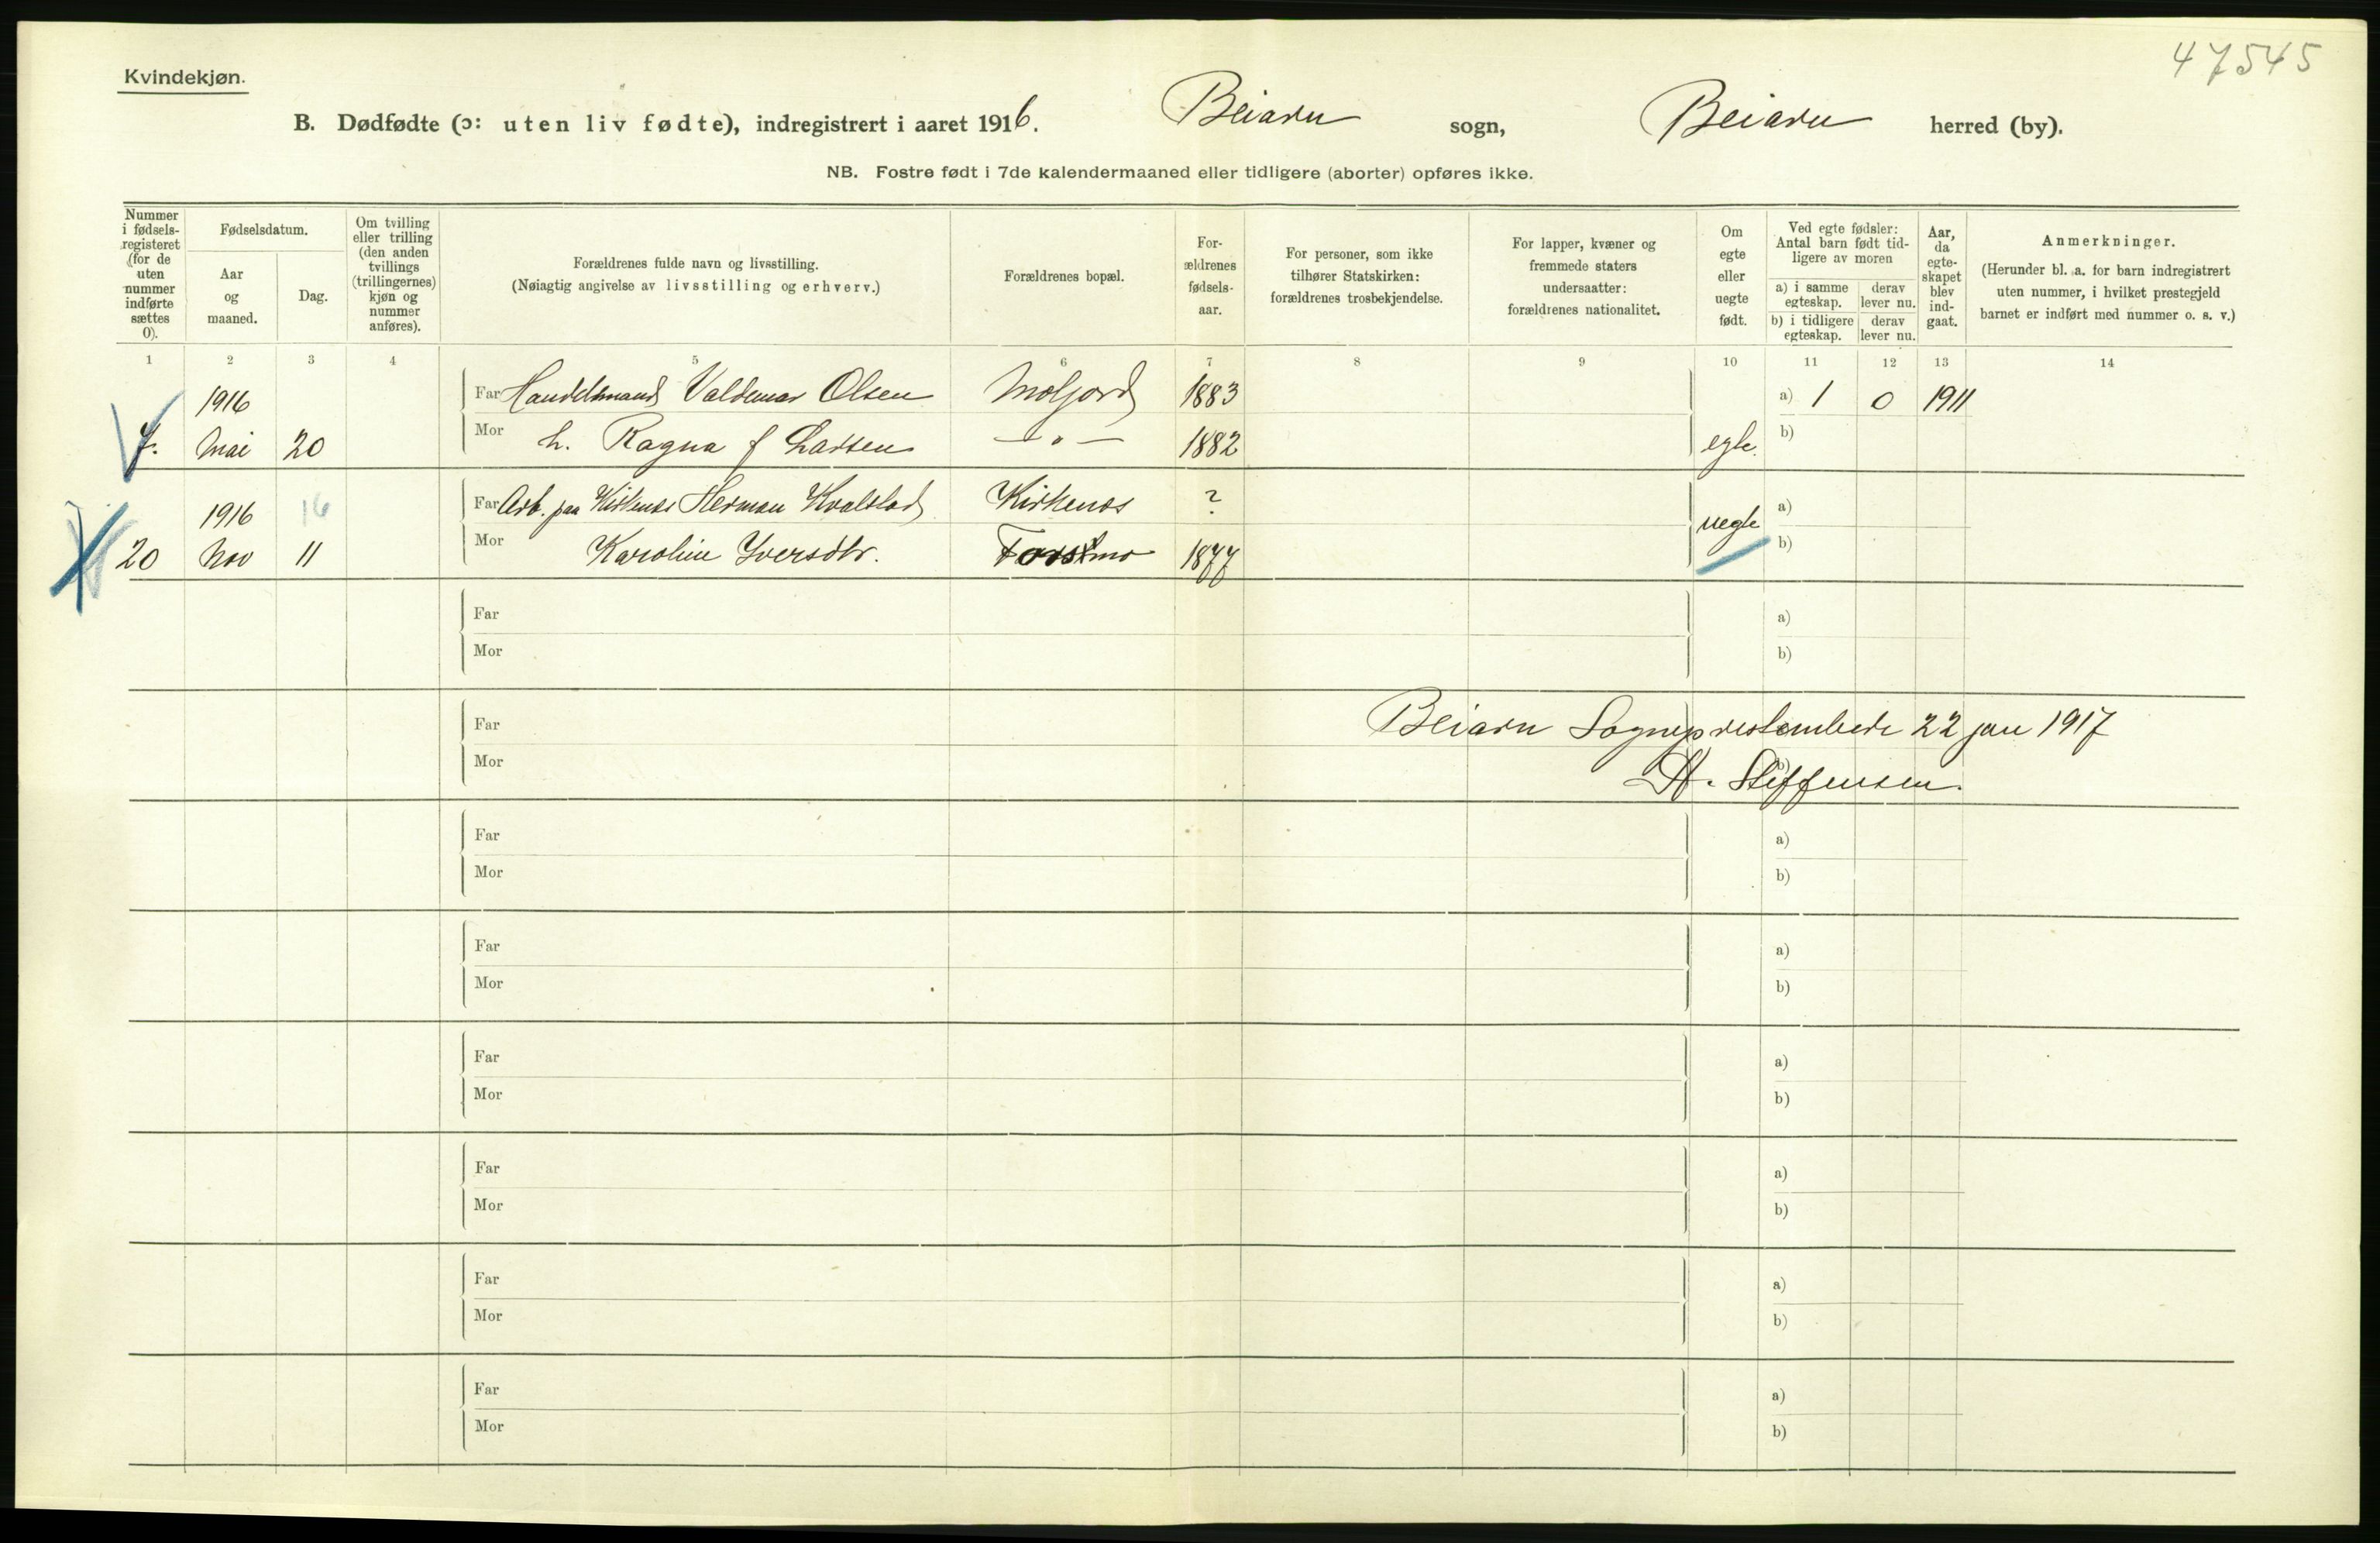 47545
Kvindekjøn.
B. Dødfødte (ɔ: uten liv fødte), indregistrert i aaret 1916. Beiarn sogn, Beiarn herred (by).
NB. Fostre født i 7de kalendermaaned eller tidligere (aborter) opføres ikke.
Nummer i fødsels-registeret (for de uten nummer indførte sættes 0).
Fødselsdatum.
Aar og maaned.
Dag.
Om tvilling eller trilling (den anden tvillings (trillingernes) kjøn og nummer anføres).
Forældrenes fulde navn og livsstilling.
(Nøiagtig angivelse av livsstilling og erhverv.)
Forældrenes bopæl.
For-ældrenes fødsels-aar.
For personer, som ikke tilhører Statskirken: forældrenes trosbekjendelse.
For lapper, kvæner og fremmede staters undersaatter: forældrenes nationalitet.
Om egte eller uegte født.
Ved egte fødsler: Antal barn født tid-ligere av moren
a) i samme egteskap.
derav lever nu.
b) i tidligere egteskap.
derav lever nu.
Aar, da egte-skapet blev ind-gaat.
Anmerkninger.
(Herunder bl. a. for barn indregistrert uten nummer, i hvilket prestegjeld barnet er indført med nummer o. s. v.)
1 2 3 4 5 6 7 8 9 10 11 12 13 14
1916 Far Handelsmand Valdemar Olsen Moljord 1883 a) 1 0 1911
7. Mai 20 Mor h. Ragna f Larsen — " — 1882 egte. b)
1916 16 Far Arb. paa Kirkenes Herman Kvalstad Kirkenes ? uegte a)
20 Nov 11 Mor Karoline Iversdtr. Forsmo 1877 b)
Far a)
Mor b)
Far Beiarn Sogneprestembede 22 jan 1917
Mor A. Steffensen.
Far a)
Mor b)
Far a)
Mor b)
Far a)
Mor b)
Far a)
Mor b)
Far a)
Mor b)
Far a)
Mor b)